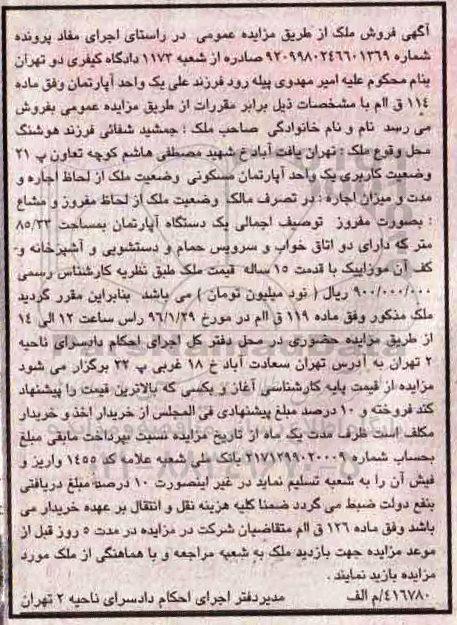 آگهی فروش ملک از طریق مزایده عمومی در راستای اجرای مفاد پرونده
شماره ۹۲۰۹۹۸۰۲۴۶۶۰۱۳۶۹ صادره از شعبه ۱۱۷۳ دادگاه کیفری دو تهران
بنام محکوم علیه امیر مهدوی پیله رود فرزند علی یک واحد آپارتمان وفق ماده
۱۱۴ ق اام با مشخصات ذیل برابر مقررات از طریق مزایده عمومی بفروش
می رسد نام و نام خانوادگی صاحب ملک : جمشید شفائی فرزند هوشنگ
محل وقوع ملک : تهران یافت آباد خ شهید مصطفی هاشم کوچه تعاون پ ۲۱
وضعیت کاربری یک واحد آپارتمان مسکونی وضعیت ملک از لحاظ اجاره و
مدت و میزان اجاره : در تصرف مالک وضعیت ملک از لحاظ مفروز و مشاع
: بصورت مفروز توصیف اجمالی یک دستگاه آپارتمان بمساحت ۸۵/۳۳
متر که دارای دو اتاق خواب و سرویس حمام و دستشویی و آشپزخانه و
کف آن موزاییک با قدمت ۱۵ ساله قیمت ملک طبق نظریه کارشناس رسمی
۹۰۰/۰۰۰/۰۰۰ ریال ( نود میلیون تومان ) می باشد بنابراین مقرر گردید
ملک مذکور وفق ماده ۱۱۹ ق اام در مورخ ۹۶/۱/۲۹ راس ساعت ۱۲ الی ۱۴
از طریق مزایده حضوری در محل دفتر کل اجرای احکام دادسرای ناحیه
۲ تهران به آدرس تهران سعادت آباد خ ۱۸ غربی پ ۳۳ برگزار می شود
مزایده از قیمت پایه کارشناسی آغاز و بکسی که بالاترین قیمت را پیشنهاد
کند فروخته و ۱۰ درصد مبلغ پیشنهادی فی المجلس از خریدار اخذ و خریدار
مکلف است ظرف مدت یک ماه از تاریخ مزایده نسبت بپرداخت مابقی مبلغ
بحساب شماره ۲۱۷۱۲۹۹۰۲۰۰۰۹ بانک ملی شعبه علامه کد ۱۴۵۵ واریز و
فیش آن را به شعبه تسلیم نماید در غیر اینصورت ۱۰ درصد مبلغ دریافتی
بنفع دولت ضبط می گردد ضمنا کلیه هزینه نقل و انتقال بر عهده خریدار می
باشد وفق ماده ۱۲۶ ق اام متقاضیان شرکت در مزایده در مدت ۵ روز قبل از
موعد مزایده جهت بازدید ملک به شعبه مراجعه و با هماهنگی از ملک مورد
مزایده بازدید نمایند .
۴۱۶۷۸۰/م الف مدیردفتر اجرای احکام دادسرای ناحیه ۲ تهران